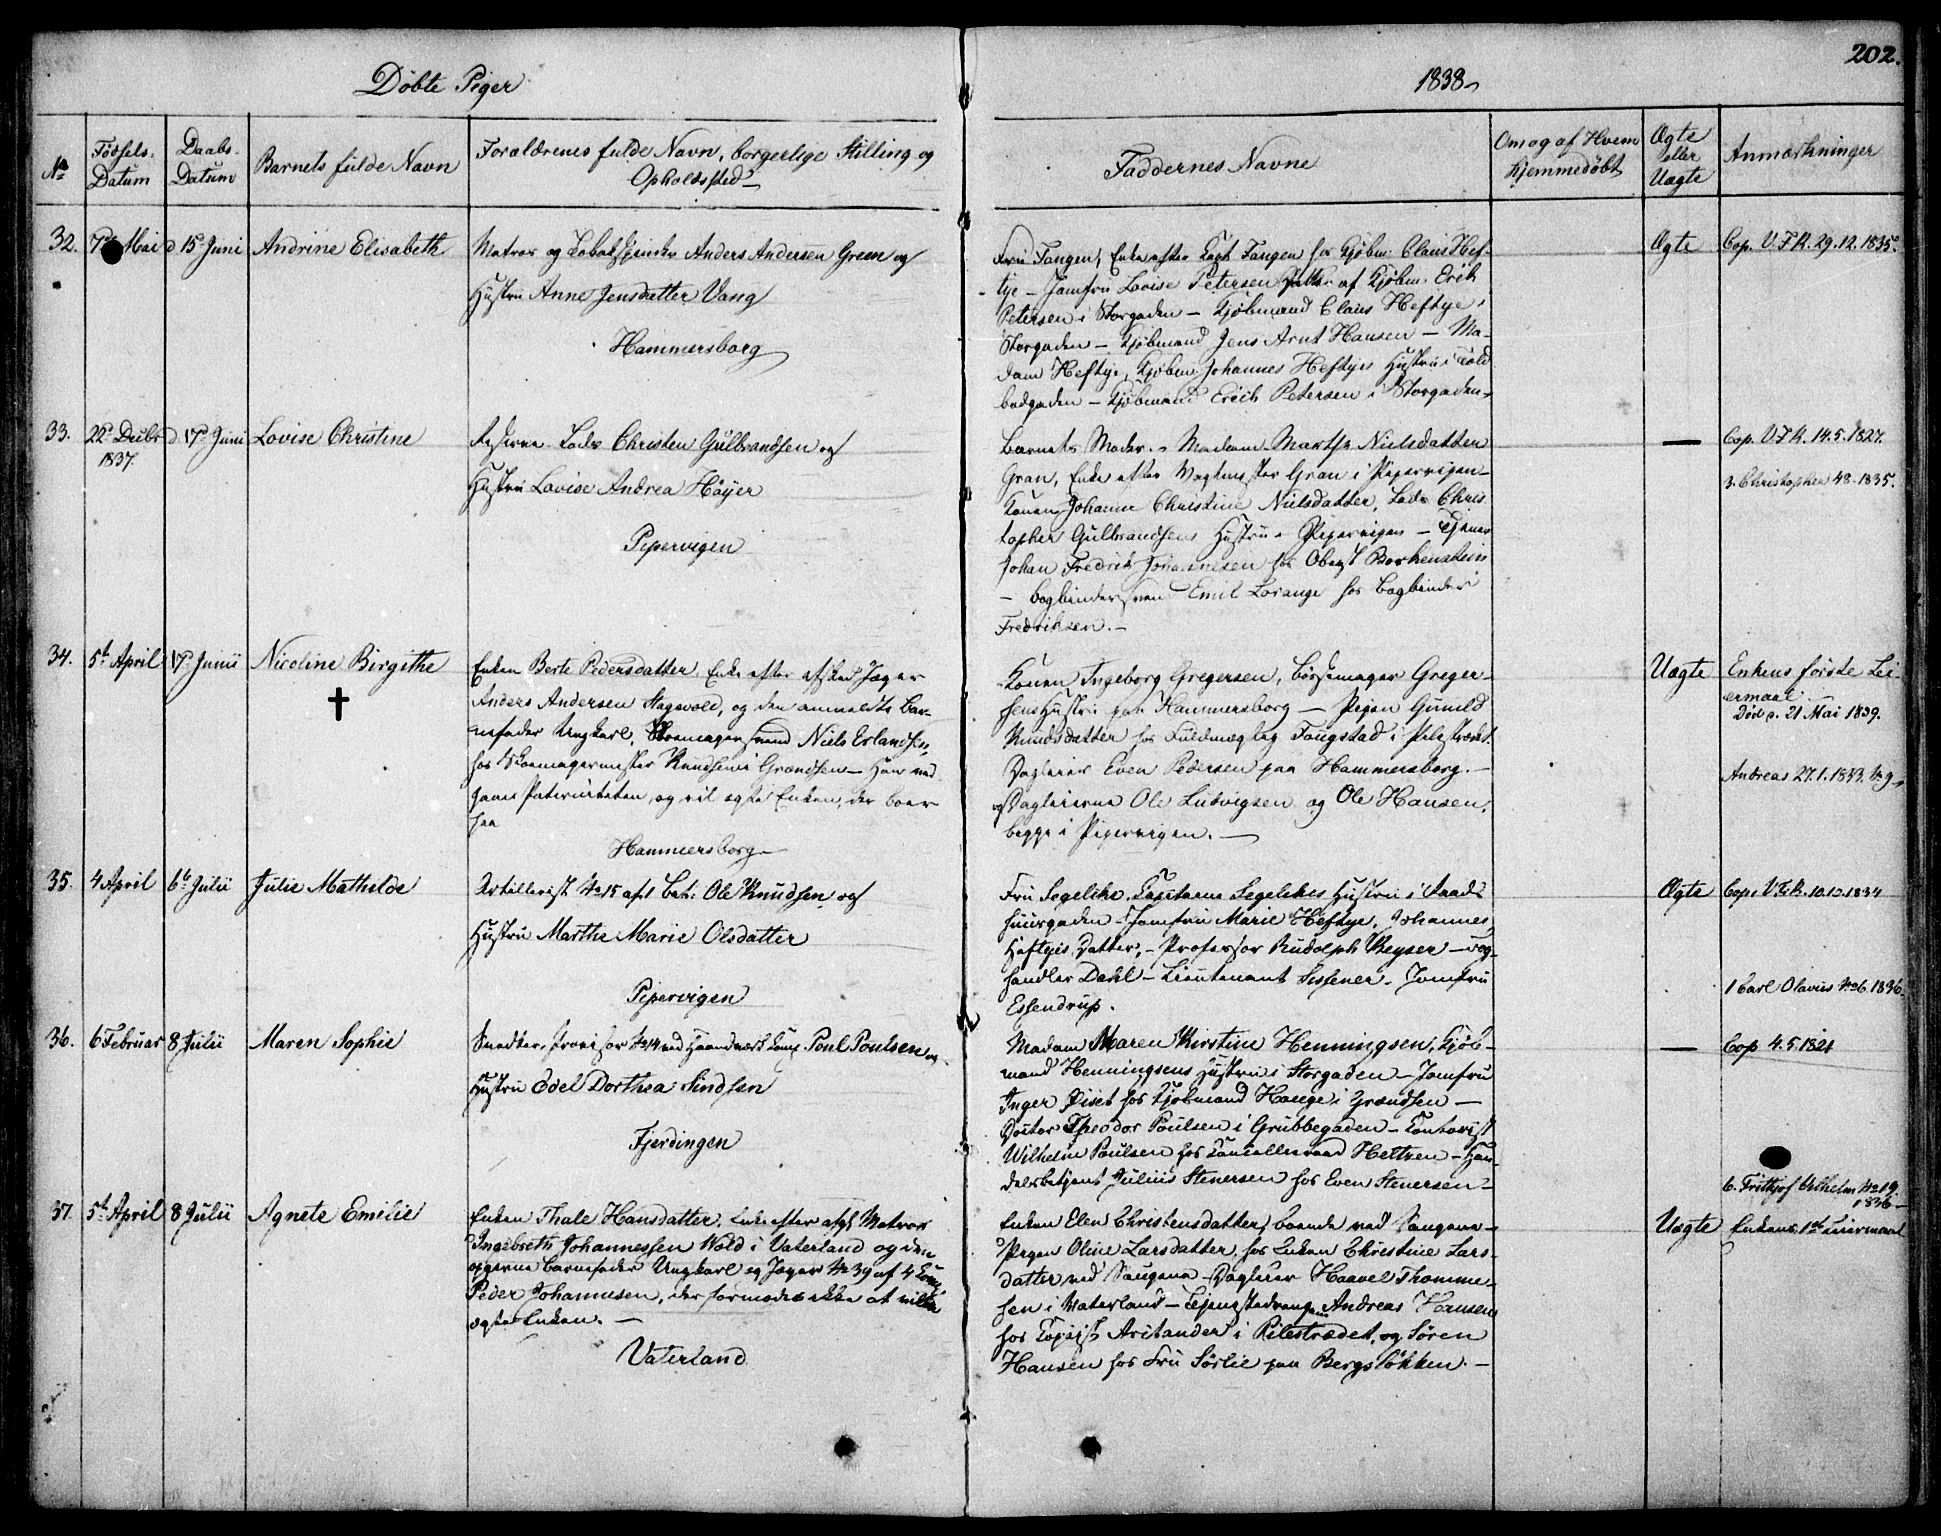 202.
Döbte Piger
1838
No
Födsels-
Datum
Daabs-
Datum
Barnets fulde Navn
Forældrenes fulde Navn, borgerlige Stilling og
Opholdssted
Faddernes Navne
Om og af Hvem
hjemmedöbt
Ægte
eller
Uægte
Anmærkninger
32. 7de Mai d 15 Juni Andrine Elisabeth
Matros og Tobakspinder Anders Andersen Green og
Hustru Anne Jensdatter Vang
Hammersborg
Fru Fangen, Enke efter Capt Fangen hos Kjøbm: Claus Hef-
tye - Jomfru Lovise Petersen Datter af Kjøbm. Erik
Petersen i Storgaden - Kjøbmand Claus Heftye i
Storgaden - Kjøbmand Jens Arnt Hansen - Ma-
dam Heftye, Kjøbm: Johannes Heftyes Hustru i Told
bodgaden - Kjøbmand Erich Petersen i Storgaden
Ægte
Cop. V.F.K. 29.12.1835.
33. 22de Decbr d 17de Juni Lovise Christine
1837.
Reserve Lods Christen Gulbrandsen og
Hustru Lovise Andrea Höyer
Pepervigen
Barnets Moder - Madam Marthe Nielsdatter
Gran, Enke efter Vagtmester Gran i Pepervigen -
Konen Johanne Christine Nielsdatter, Lods Chris
topher Gulbrandsens Hustru i Pepervigen - Tjener
Johan Fredrik Johannesen hos Oberst Berkenstein
- Bogbindersvend Emil Lorange hos Bogbinder
Fredriksen. -
—
Cop. V.F.K. 14.5.1827.
3. Christopher 48-1835.
34. 5te April 17de Junii Nicoline Birgithe
†
Enken Berte Pedersdatter, Enke efter afsked Jæger
Anders Andersen Stagsvold, og den anmeldte Bar-
nefader Ungkarl, Skomagersvend Niels Erlandsen,
hos Skoemagermester Knudsen i Grændsen - Han ved-
gaaer Paterniteten, og vil ægte Enken, der boer
paa
Hammersborg
Konen Ingeborg Gregersen, Börsemager Greger-
sens Hustru paa Hammersborg - Pigen Gunild
Knudsdatter hos Fuldmægtig Fougstad i Pilestrædet.
Dagleier Even Pedersen paa Hammersborg. -
og Dagleierne Ole Ludvigsen og Ole Hansen,
begge i Pipervigen. —
Uægte
Enkens förste Lei-
ermaal
Död d. 21 Mai 1839.
Andreas 27.1.1833. No 9
35. 4 April 6te Julii Julie Mathilde
Artillerist No 15 af 1 Bat: Ole Knudsen og
Hustru Marthe Marie Olsdatter
Pipervigen
Fru Segelke, Capitaine Segelckes Hustru i Raad
huusgaden - Jomfru Marie Heftye, Johannes
Heftyes Datter, - Professor Rudolph Keyser - Bog-
handler Dahl - Lieutenant Sissener - Jomfru
Essendrup.
Ægte
Cop. V.F.K. 10.12.1834
1 Carl Olavius No 6. 1836
36. 6 Februar 8 Julii Maren Sophie
Snedker, Provisor No 14 ved Haandværks Comp. Poul Poulsen og
Hustru Edel Dorthea Sindsen
Fjerdingen
Madam Maren Kirstine Henningsen, Kjøb-
mand Henningsens Hustru i Storgaden - Jomfru
Inger Qviset hos Kjøbmand Hauge i Grændsen -
Doctor Theodor Poulsen i Grubbegaden - Contorist
Wilhelm Poulsen hos Cancelliraad Heltzen - Han-
delsbetjent Julius Stenersen hos Even Stenersen -
—
Cop. 4.5.1821
6. Frithjof Wilhelm No 19
1836
37. 5te April 8 Julii Agnete Emilie
Enken Thale Hansdatter, Enke efter afg. Matros
Ingebreth Johannessen Wold i Vaterland og den
opgivne Barnefader Ungkarl og Jæger No 39 af 4 Comp:
Peder Johannesen, der formodes ikke at ville
ægte Enken. —
Vaterland
Enken Elen Christensdatter, boende ved Saugene -
Pigen Oline Larsdatter, hos Enken Christine Lars-
datter ved Saugene - Dagleier Haavel Thomme-
sen i Vaterland - Andreas Hansen
hos Copiist Aritander i Pilestrædet, og Sören
Hansen hos Fru Sörlie paa Bergslökken. -
Uægte
Enkens 1ste Leiermaal